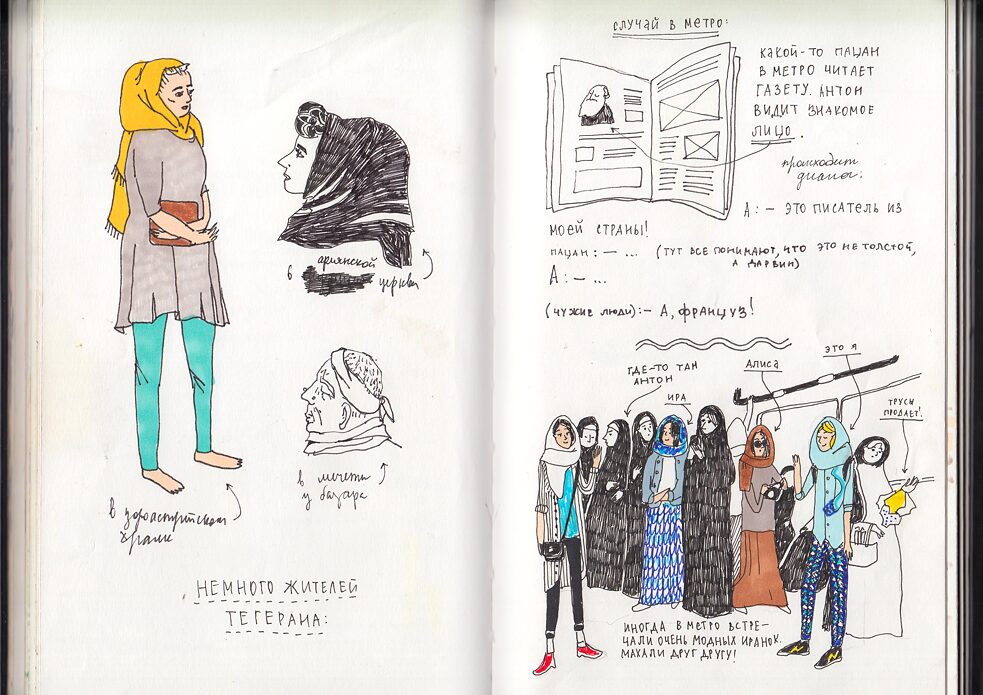 армянской
в церкви
в мечети
у базара
в зороастрийском
храме
НЕМНОГО ЖИТЕЛЕЙ
ТЕГЕРАНА:
СЛУЧАЙ В МЕТРО:
КАКОЙ-ТО ПАЦАН
В МЕТРО ЧИТАЕТ
ГАЗЕТУ. АНТОН
ВИДИТ ЗНАКОМОЕ
ЛИЦО.
происходит
диалог:
А: – ЭТО ПИСАТЕЛЬ ИЗ
МОЕЙ СТРАНЫ!
ПАЦАН: – ... (ТУТ ВСЕ ПОНИМАЮТ, ЧТО ЭТО НЕ ТОЛСТОЙ,
А ДАРВИН)
А: – ...
(ЧУЖИЕ ЛЮДИ): – А, ФРАНЦУЗ!
ГДЕ-ТО ТАМ
АНТОН
ИРА
АЛИСА
ЭТО Я
ТРУСЫ
ПРОДАЕТ!
ИНОГДА В МЕТРО ВСТРЕ-
ЧАЛИ ОЧЕНЬ МОДНЫХ ИРАНОК.
МАХАЛИ ДРУГ ДРУГУ!